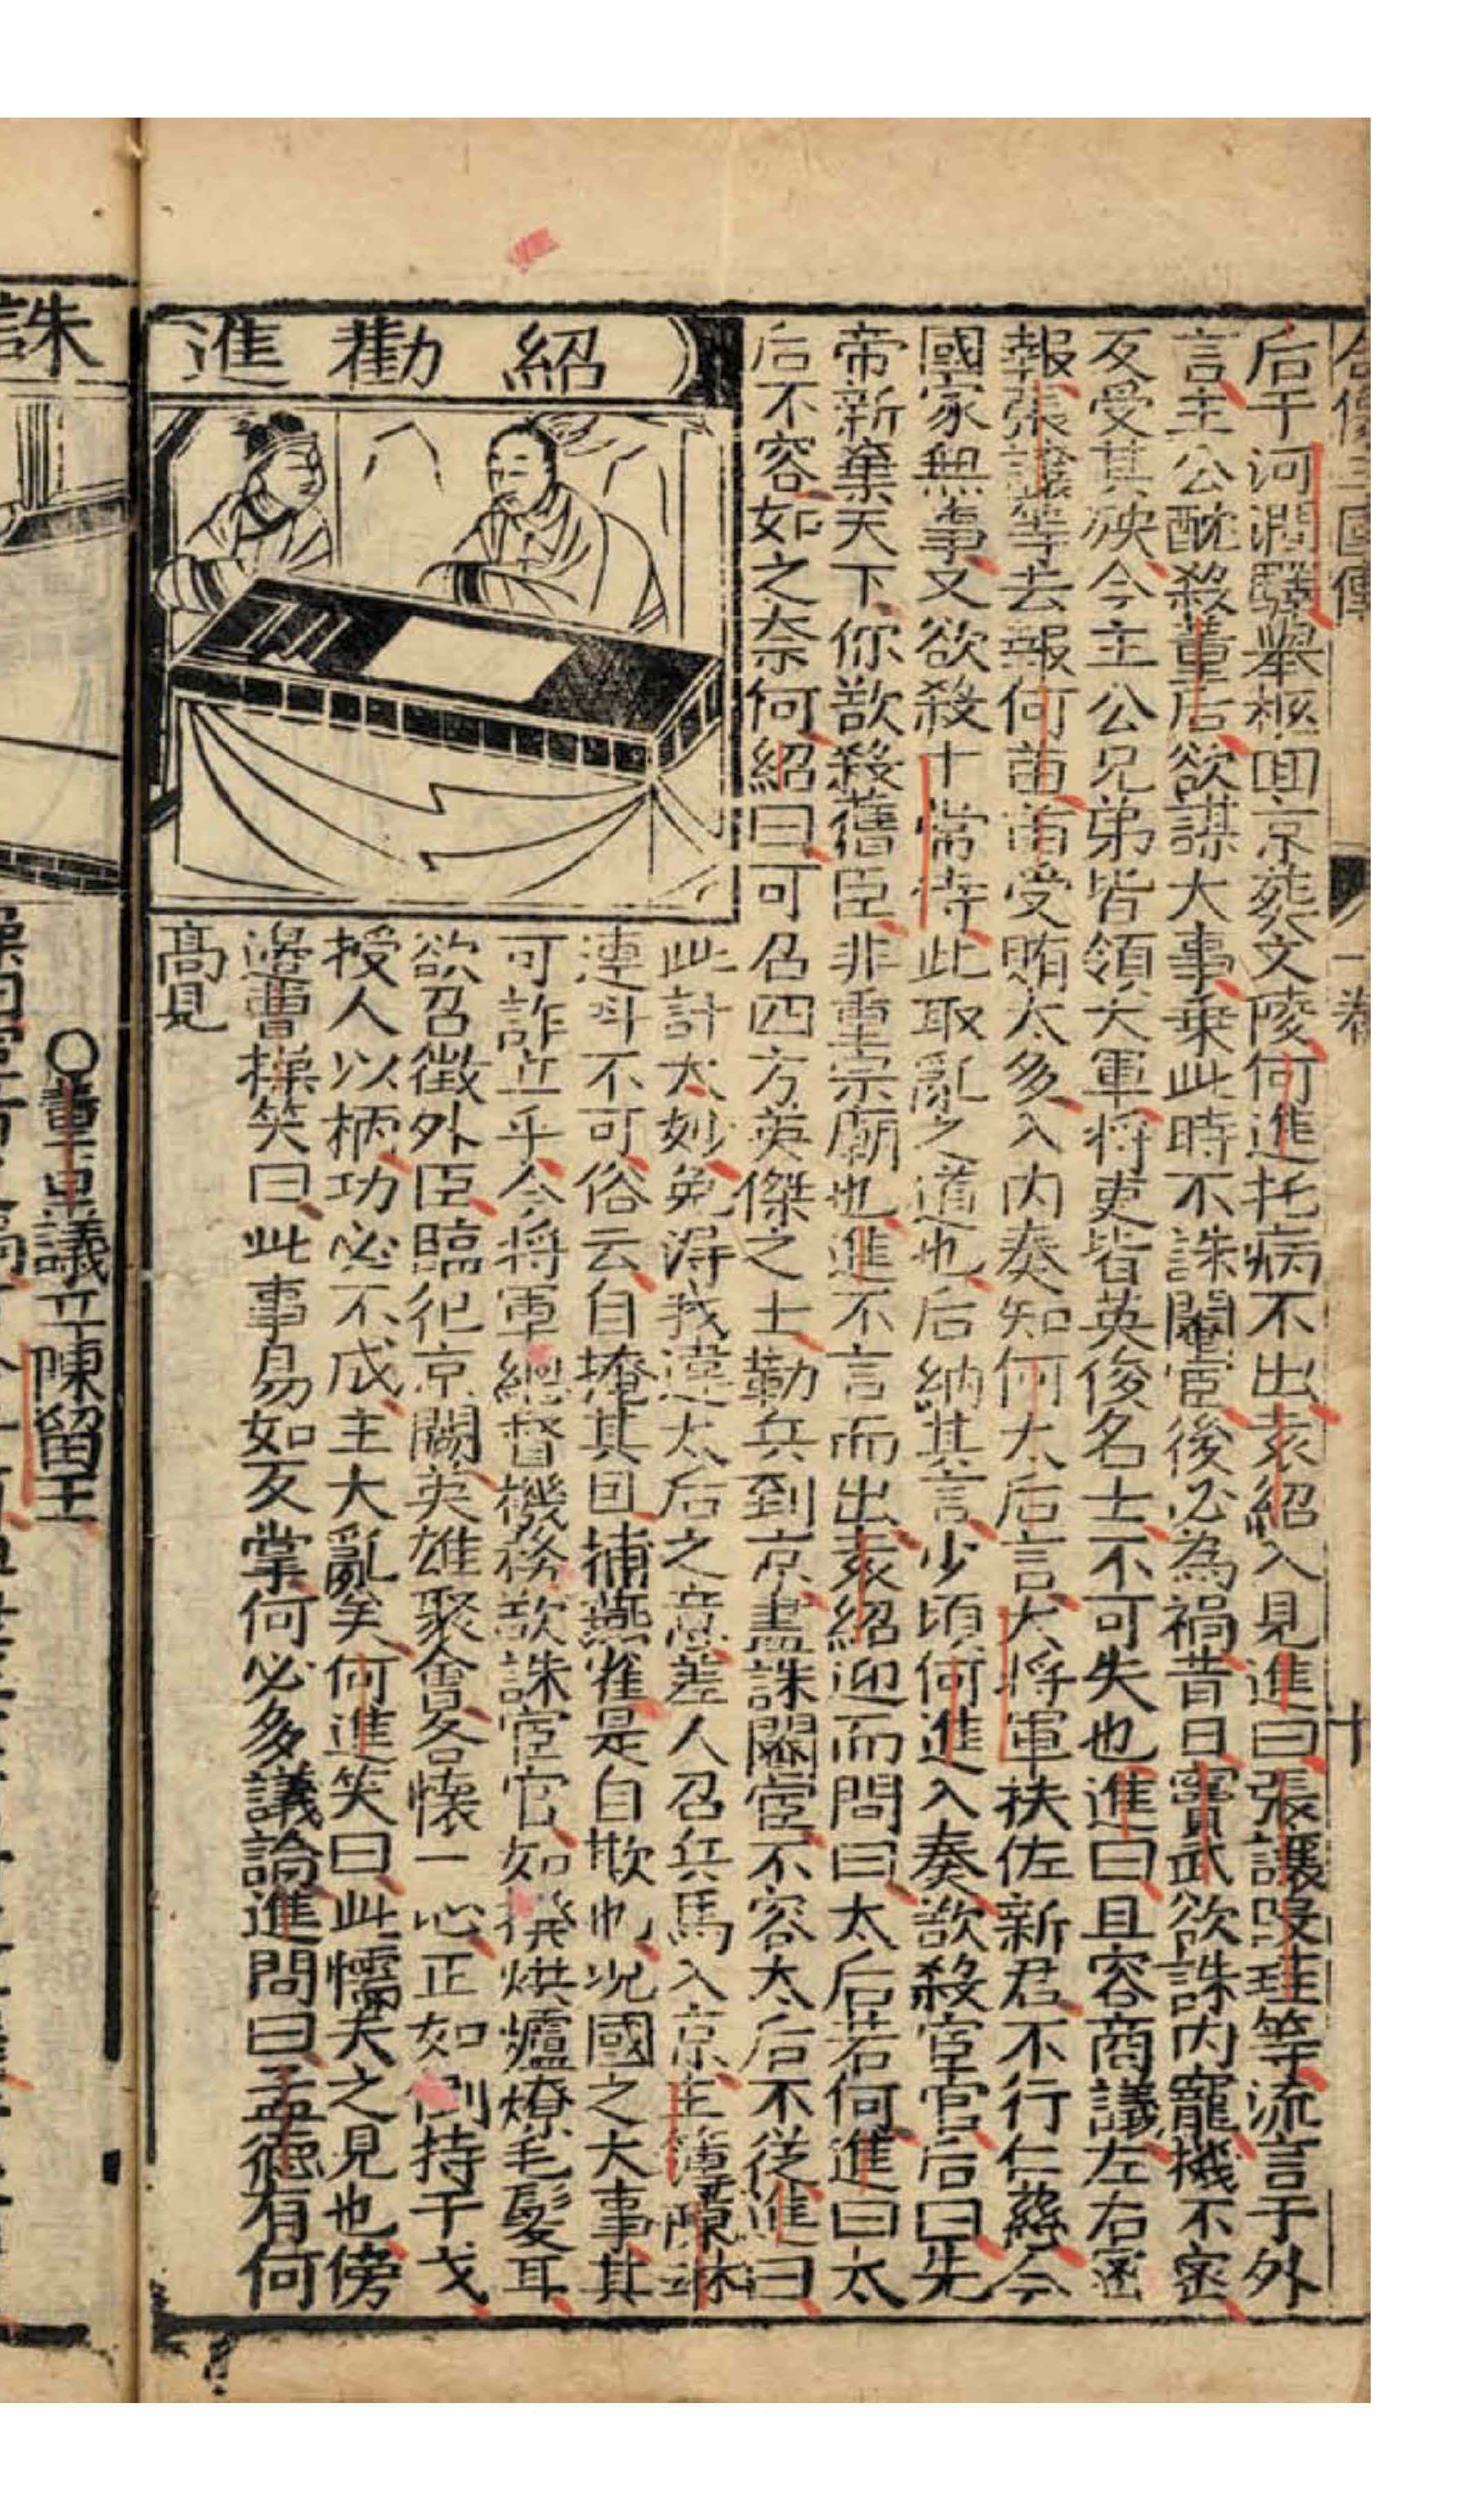 全像三國傳 一卷 十
后于河澗驛舉柩回京葬文陵何進托病不出袁紹入見進曰張讓段珪等流言于外
言主公酖殺董后欲謀大事乘此時不誅閹宦後必為禍昔日竇武欲誅内寵機不密
反受其殃今主公兄弟皆領大軍将吏皆英俊名士不可失也進曰且容商議左右密
報張讓等去報何苗苗受賄太多入内奏知何太后言大将軍扶佐新君不行仁慈今
國家無事又欲殺十常侍此取亂之道也后納其言少頃何進入奏欲殺宦官后曰先
帝新棄天下你欲殺舊臣非重宗廟也進不言而出袁紹迎而問曰太后若何進曰太
后不容如之奈何紹曰可召四方英傑之士勒兵到京盡誅閹宦不容太后不從進曰
紹勸進
此計大妙免淂我違太后之意差人召兵馬入京主簿陳琳
連叫不可俗云自掩其目捕燕雀是自欺也况國之大事其
可詐立乎今将軍總督機務欲誅宦官如撥烘爐燎毛髮耳
欲召徵外臣臨犯京闕英雄聚會各懷一心正如倒持干戈
授人以柄功必不成主大亂矣何進笑曰此懦夫之見也傍
邊曹操笑曰此事易如反掌何必多議論進問曰孟德有何
高見
○董卓議立陳留王
誅